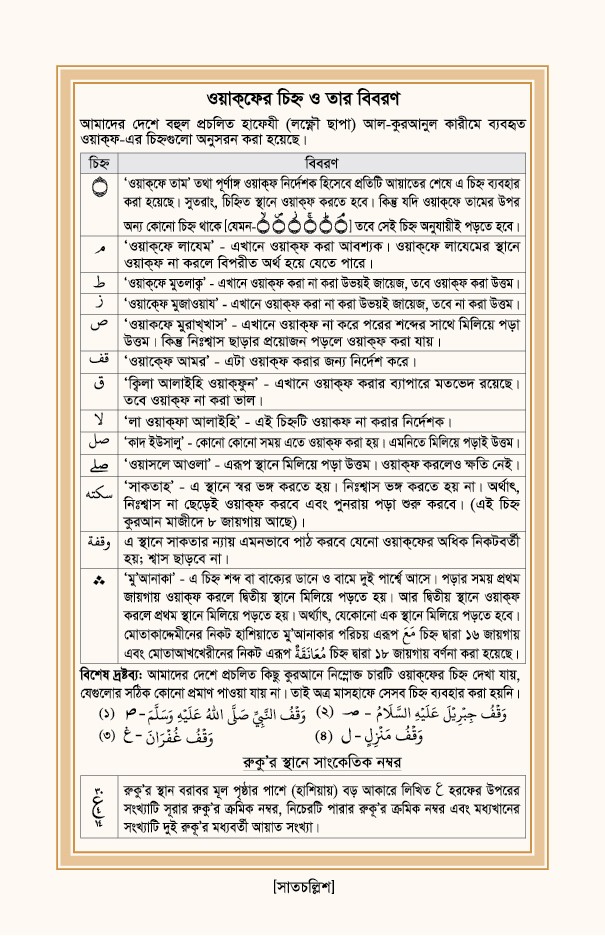 ওয়াক্‌ফের চিহ্ন ও তার বিবরণ
আমাদের দেশে বহুল প্রচলিত হাফেযী (লক্ষ্ণৌ ছাপা) আল-কুরআনুল কারীমে ব্যবহৃত
ওয়াক্‌ফ-এর চিহ্নগুলো অনুসরন করা হয়েছে।
চিহ্ন বিবরণ
‘ওয়াক্‌ফে তাম’ তথা পূর্ণাঙ্গ ওয়াক্‌ফ নির্দেশক হিসেবে প্রতিটি আয়াতের শেষে এ চিহ্ন ব্যবহার
করা হয়েছে। সুতরাং, চিহ্নিত স্থানে ওয়াক্‌ফ করতে হবে। কিন্তু যদি ওয়াক্‌ফে তামের উপর
অন্য কোনো চিহ্ন থাকে [যেমন-] তবে সেই চিহ্ন অনুযায়ীই পড়তে হবে।
مـ ‘ওয়াক্‌ফে লাযেম’ - এখানে ওয়াক্‌ফ করা আবশ্যক। ওয়াক্‌ফে লাযেমের স্থানে
ওয়াক্‌ফ না করলে বিপরীত অর্থ হয়ে যেতে পারে।
ط ‘ওয়াক্‌ফে মুতলাক্ব’ - এখানে ওয়াক্‌ফ করা না করা উভয়ই জায়েজ, তবে ওয়াক্‌ফ করা উত্তম।
ز ‘ওয়াক্‌ফে মুজাওয়ায’ - এখানে ওয়াক্‌ফ করা না করা উভয়ই জায়েজ, তবে না করা উত্তম।
ص ‘ওয়াকফে মুরাখ্‌খাস’ - এখানে ওয়াক্‌ফ না করে পরের শব্দের সাথে মিলিয়ে পড়া
উত্তম। কিন্তু নিঃশ্বাস ছাড়ার প্রয়োজন পড়লে ওয়াক্‌ফ করা যায়।
قف ‘ওয়াক্‌ফে আমর’ - এটা ওয়াক্‌ফ করার জন্য নির্দেশ করে।
ق ‘ক্বিলা আলাইহি ওয়াক্‌ফুন’ - এখানে ওয়াক্‌ফ করার ব্যাপারে মতভেদ রয়েছে।
তবে ওয়াক্‌ফ না করা ভাল।
لا ‘লা ওয়াক্‌ফা আলাইহি’ - এই চিহ্নটি ওয়াকফ না করার নির্দেশক।
صل ‘কাদ ইউসালু’ - কোনো কোনো সময় এতে ওয়াক্‌ফ করা হয়। এমনিতে মিলিয়ে পড়াই উত্তম।
صلے ‘ওয়াসলে আওলা’ - এরূপ স্থানে মিলিয়ে পড়া উত্তম। ওয়াক্‌ফ করলেও ক্ষতি নেই।
سكته ‘সাকতাহ’ - এ স্থানে স্বর ভঙ্গ করতে হয়। নিঃশ্বাস ভঙ্গ করতে হয় না। অর্থাৎ,
নিঃশ্বাস না ছেড়েই ওয়াক্‌ফ করবে এবং পুনরায় পড়া শুরু করবে। (এই চিহ্ন
কুরআন মাজীদে ৮ জায়গায় আছে)।
وقفة এ স্থানে সাকতার ন্যায় এমনভাবে পাঠ করবে যেনো ওয়াক্‌ফের অধিক নিকটবর্তী
হয়; শ্বাস ছাড়বে না।
∴ ‘মু‘আনাকা’ - এ চিহ্ন শব্দ বা বাক্যের ডানে ও বামে দুই পার্শ্বে আসে। পড়ার সময় প্রথম
জায়গায় ওয়াক্‌ফ করলে দ্বিতীয় স্থানে মিলিয়ে পড়তে হয়। আর দ্বিতীয় স্থানে ওয়াক্‌ফ
করলে প্রথম স্থানে মিলিয়ে পড়তে হয়। অর্থ্যাৎ, যেকোনো এক স্থানে মিলিয়ে পড়তে হবে।
মোতাকাদ্দেমীনের নিকট হাশিয়াতে মু‘আনাকার পরিচয় এরূপ مَعَ চিহ্ন দ্বারা ১৬ জায়গায়
এবং মোতাআখখেরীনের নিকট এরূপ مُعَانَقَةٌ চিহ্ন দ্বারা ১৮ জায়গায় বর্ণনা করা হয়েছে।
বিশেষ দ্রষ্টব্য: আমাদের দেশে প্রচলিত কিছু কুরআনে নিম্নোক্ত চারটি ওয়াক্‌ফের চিহ্ন দেখা যায়,
যেগুলোর সঠিক কোনো প্রমাণ পাওয়া যায় না। তাই অত্র মাসহাফে সেসব চিহ্ন ব্যবহার করা হয়নি।
(১) وَقْفُ النَّبِيِّ صَلَّى اللّٰهُ عَلَيْهِ وَسَلَّمَ - (২) وَقْفُ جِبْرِيْلَ عَلَيْهِ السَّلَامُ -
(৩) وَقْفُ غُفْرَانَ - غُ (৪) وَقْفُ مَنْزِلٍ - ل
রুকু’র স্থানে সাংকেতিক নম্বর
٣٠ ع ٤ ١٤ রুকু’র স্থান বরাবর মূল পৃষ্ঠার পাশে (হাশিয়ায়) বড় আকারে লিখিত ع হরফের উপরের
সংখ্যাটি সূরার রুকু’র ক্রমিক নম্বর, নিচেরটি পারার রুকূ’র ক্রমিক নম্বর এবং মধ্যখানের
সংখ্যাটি দুই রুকূ’র মধ্যবর্তী আয়াত সংখ্যা।
[সাতচল্লিশ]